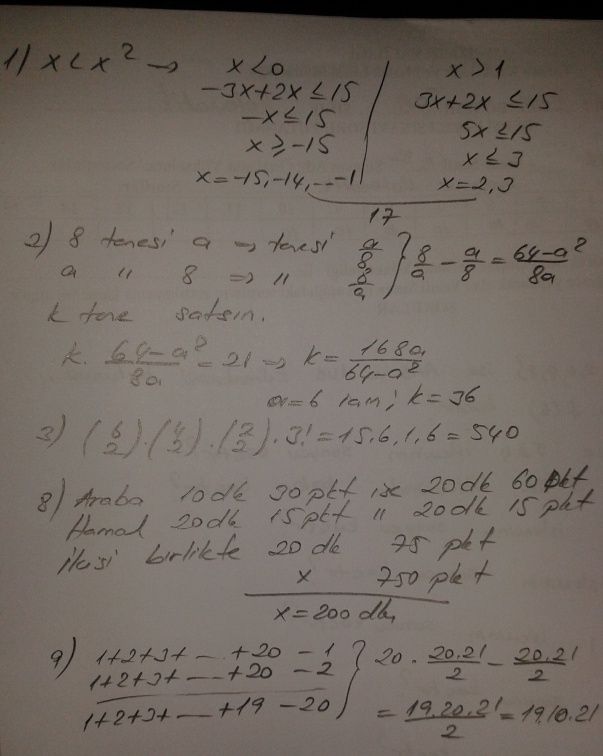 1) x < x² → x < 0 | x > 1
-3x+2x ≤ 15 | 3x+2x ≤ 15
-x ≤ 15 | 5x ≤ 15
x ≥ -15 | x ≤ 3
x = -15, -14, ... -1 | x = 2, 3
17
2) 8 tanesi a → tanesi a/8 } 8/a - a/8 = (64-a²)/8a
a " 8 ⇒ " 8/a
k tane satsın.
k. (64-a²)/8a = 21 ⇒ k = 168a/(64-a²)
a=6 için; k = 36
3) (6 2).(4 2).(2 2).3! = 15.6.1.6 = 540
8) Araba 10dk 30pkt ise 20dk 60pkt
Hamal 20dk 15pkt " 20dk 15pkt
ikisi birlikte 20 dk 75 pkt
x 750 pkt
x = 200 dk,
9) 1+2+3+ ... +20 - 1 } 20 . 20.21/2 - 20.21/2
1+2+3+ ... +20 - 2
1+2+3+ ... +19 - 20 = 19.20.21/2 = 19.10.21